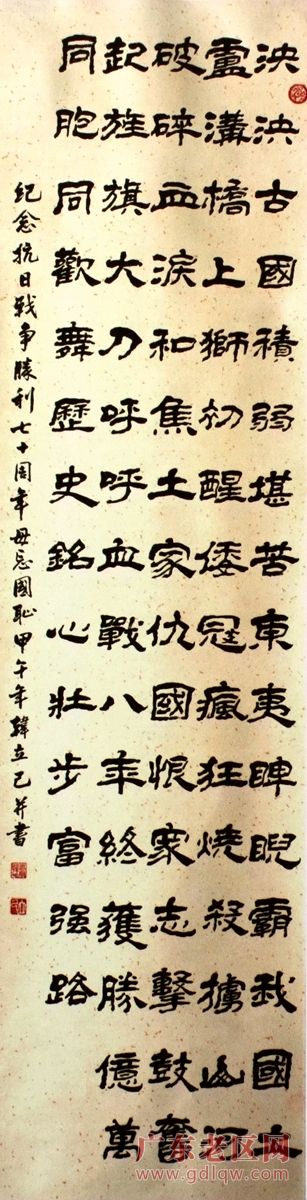 泱泱古國積弱堪苦東夷睥睨霸我國土
盧溝橋上獅初醒倭冦瘋狂燒殺擄山河
破碎血淚和焦土家仇國恨衆志擊鼓奮
起旌旗大刀呼呼血戰八年終獲勝億萬
同胞同歡舞歷史銘心壯步富强路
紀念抗日戰争勝利七十周年毋忘國恥甲午年韓立己并書
广东老区网
www.gdlqw.com